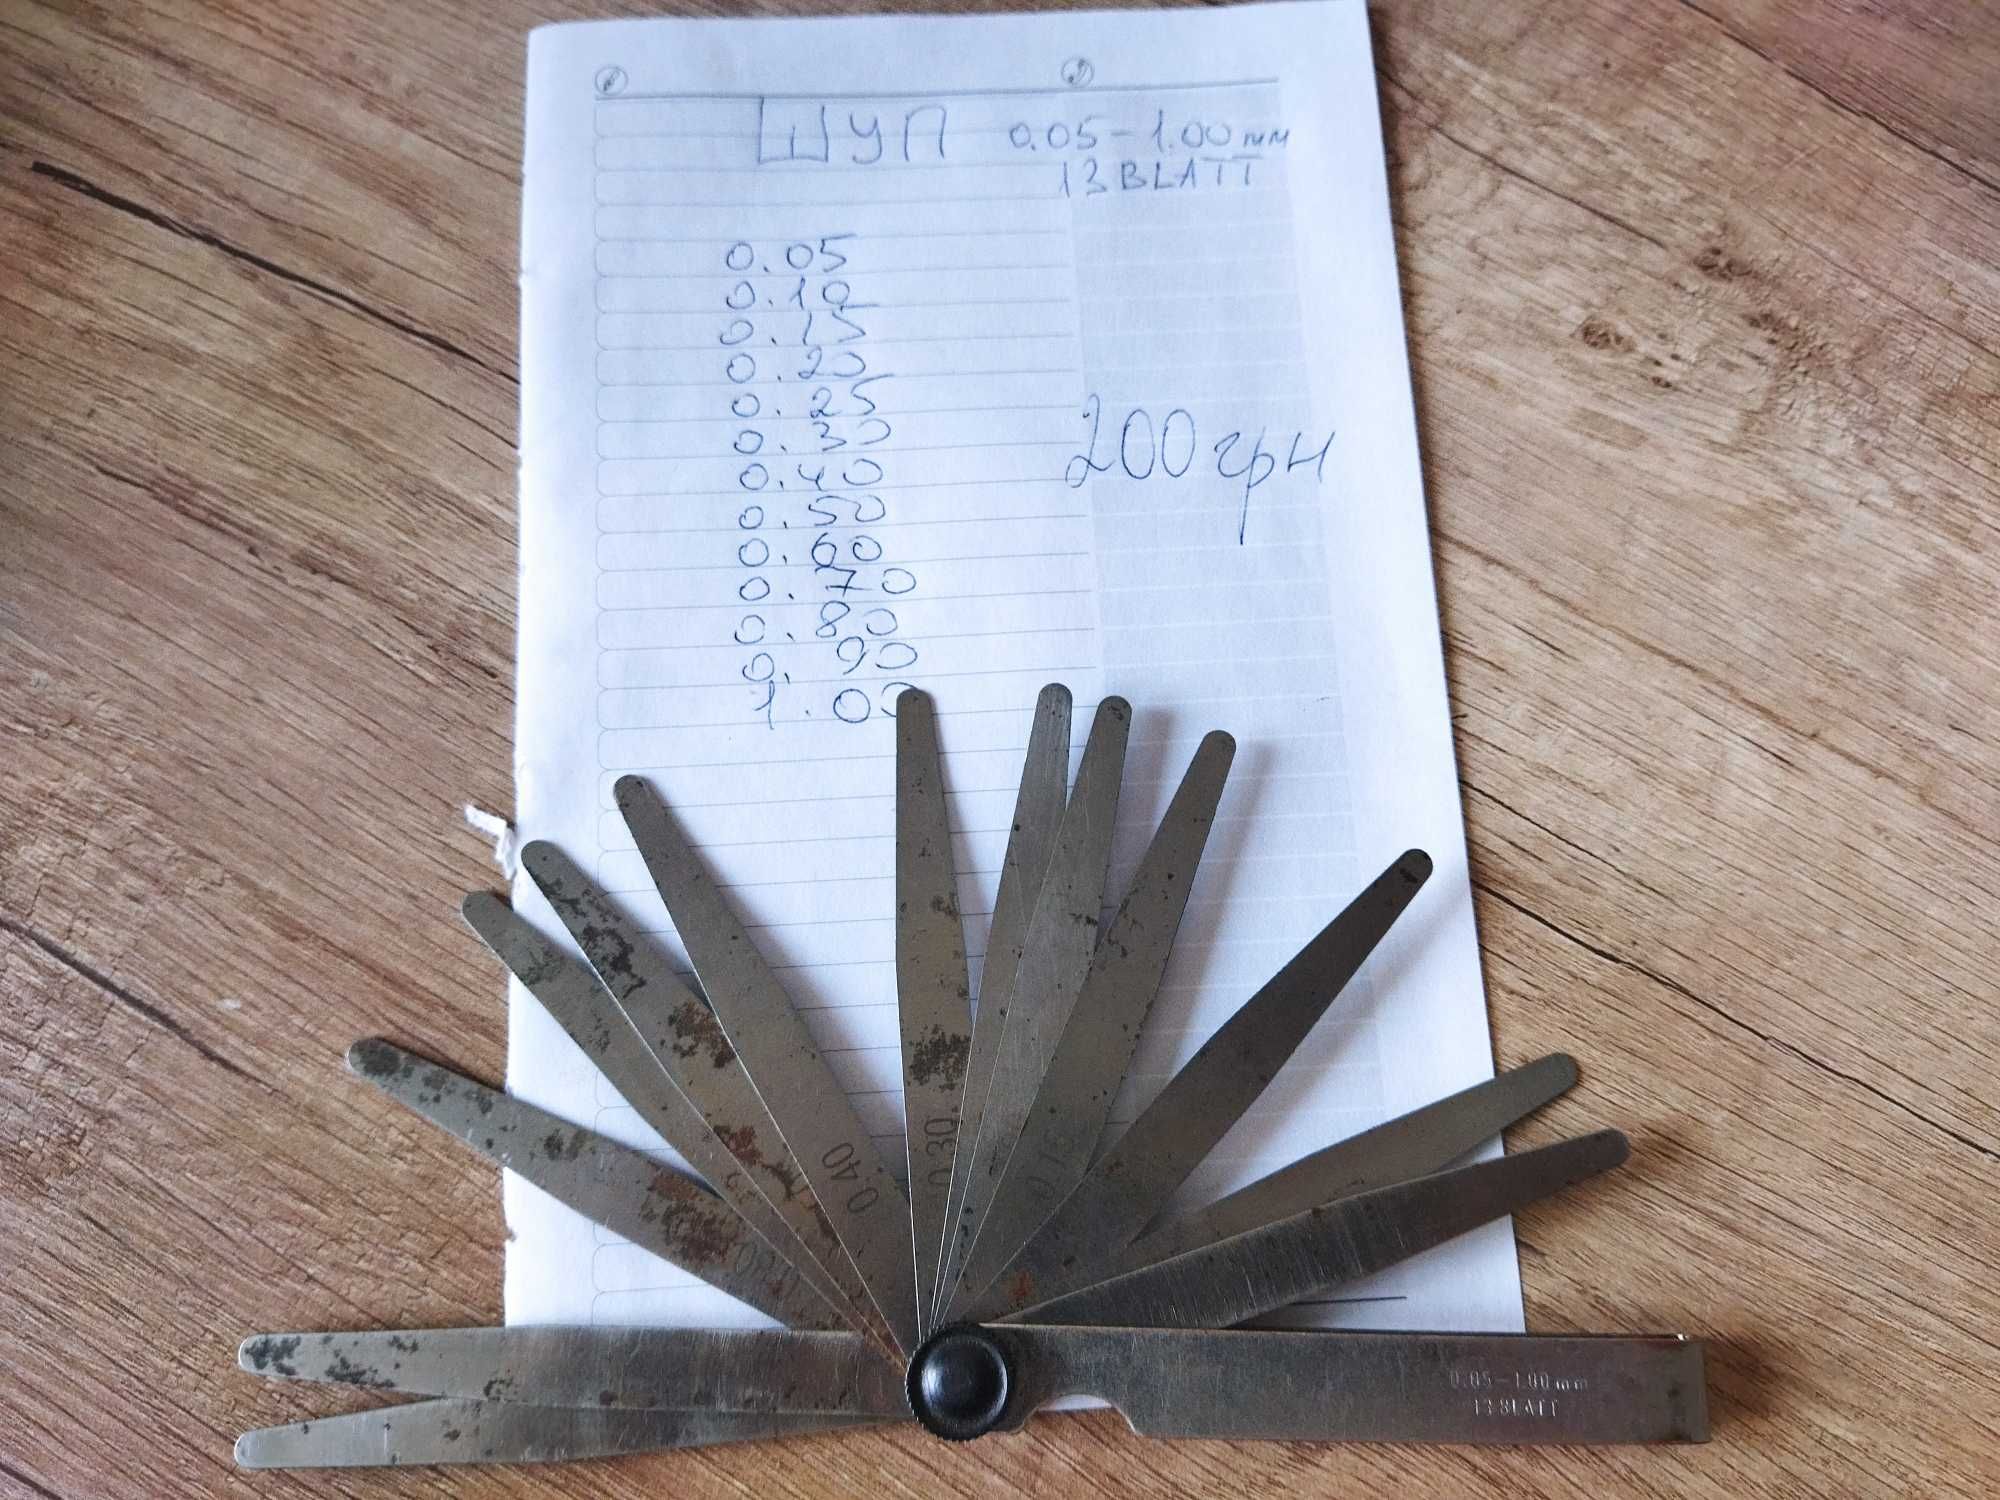 ЩУП 0.05-1.00 мм
13 BLATT
0.05
0.10
0.15
0.20
0.25
0.30
0.40
0.50
0.60
0.70
0.80
0.90
1.00
200 грн
0.40
0.30
0.15
0.05-1.00mm
13 BLATT